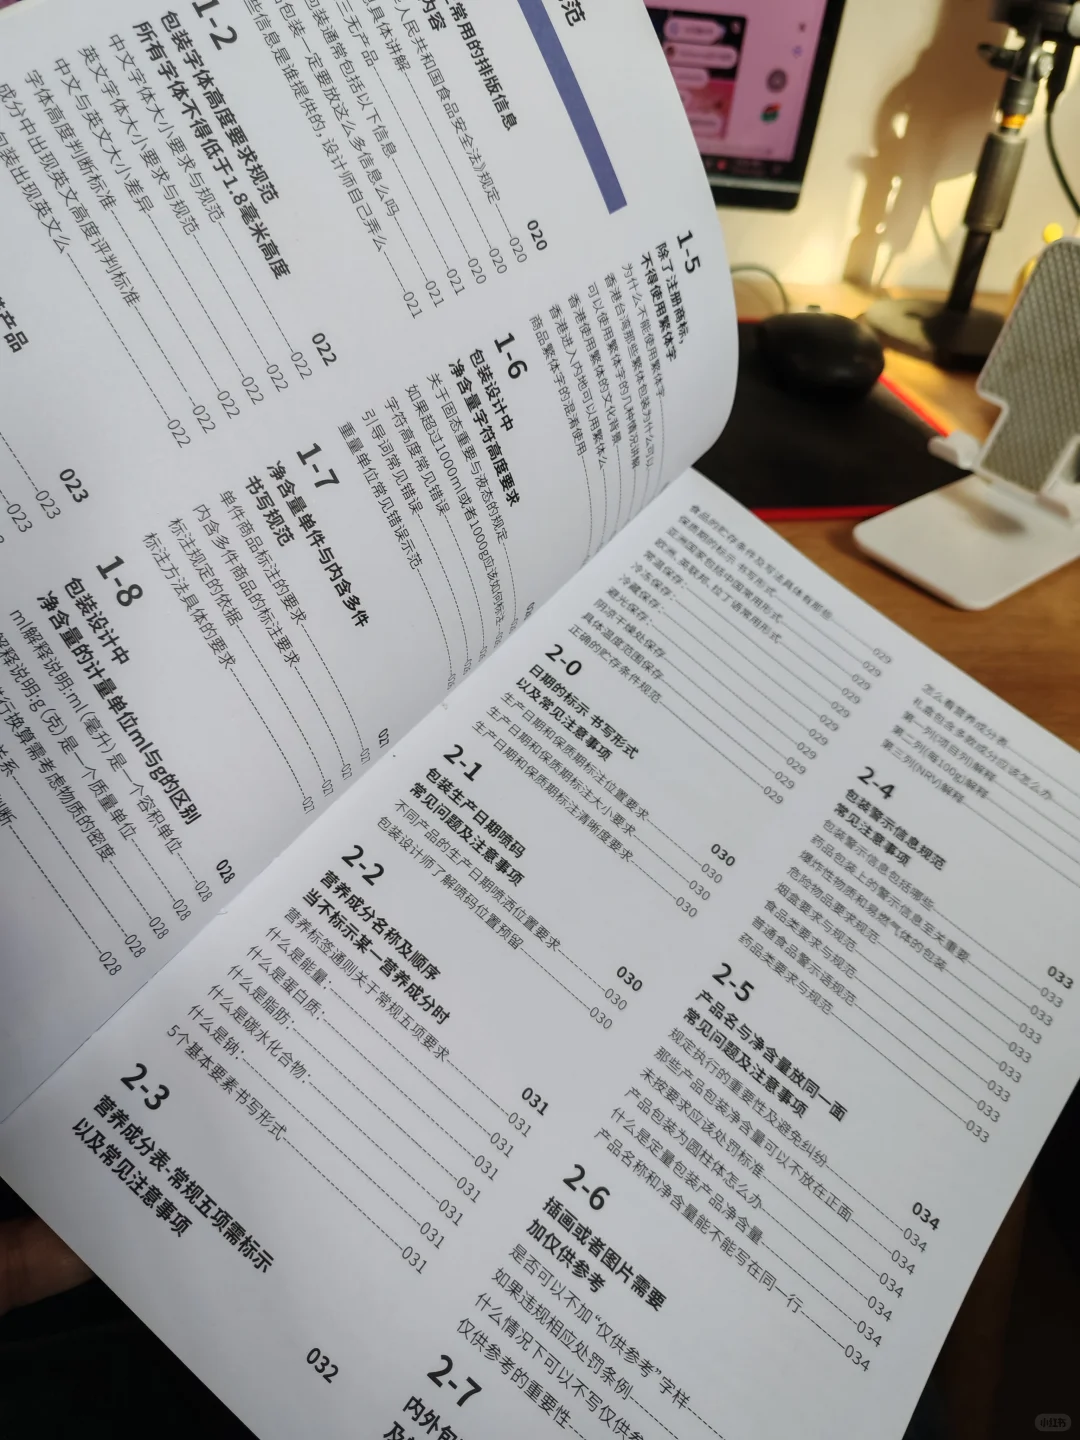 范
常用的排版信息
内容
人民共和国食品安全法》规定
020
具体讲解
020
三无产品
020
包装通常包括以下信息
021
包装一定要放这么多信息么吗
021
些信息是谁提供的,设计师自己弄么
021
1-2
包装字体高度要求规范
所有字体不得低于1.8毫米高度
022
中文字体大小要求与规范
022
英文字体大小要求与规范
022
中文与英文大小差异
022
字体高度判断标准
022
成分中出现英文高度评判标准
022
包装出现英文么
022
产品
023
023
023
1-5
除了注册商标,
不得使用繁体字
为什么不能使用繁体字
香港台湾那些繁体包装为什么可以
可以使用繁体字的几种情况讲解
香港使用繁体的文化背景
香港进入内地可以用繁体么
商品繁体字的混淆使用
1-6
包装设计中
净含量字符高度要求
关于固态重要与液态的规定
如果超过1000ml或者1000g应该如何标注
字符高度常见错误
引导词常见错误
重量单位常见错误示范
1-7
净含量单件与内含多件
书写规范
027
单件商品标注的要求
027
内含多件商品的标注要求
027
标注规定的依据
027
标注方法具体的要求
027
1-8
包装设计中
净含量的计量单位ml与g的区别
028
ml解释说明:ml(毫升)是一个容积单位
028
解释说明:g(克)是一个质量单位
028
行换算需考虑物质的密度
028
关系
028
判断
028
食品的贮存条件及写法具体有哪些
029
保质期的标示 书写形式
029
亚洲国家包括中国常用形式
029
欧洲、英联邦、拉丁语常用形式
029
常温保存:
029
冷冻保存:
029
冷藏保存:
029
避光保存:
029
阴凉干燥处保存
029
具体温度范围保存
029
正确的贮存条件规范
029
2-0
日期的标示 书写形式
以及常见注意事项
030
生产日期和保质期标注位置要求
030
生产日期和保质期标注大小要求
030
生产日期和保质期标注清晰度要求
030
2-1
包装生产日期喷码
常见问题及注意事项
030
不同产品的生产日期喷洒位置要求
030
包装设计师了解喷码位置预留
030
2-2
营养成分名称及顺序
当不标示某一营养成分时
031
营养标签通则关于常规五项要求
031
什么是能量:
031
什么是蛋白质:
031
什么是脂肪:
031
什么是碳水化合物:
031
什么是钠:
031
5个基本要素书写形式
031
2-3
营养成分表、常规五项需标示
以及常见注意事项
032
怎么看营养成分表
礼盒包含多款成分应该怎么办
第一列(项目列)解释
第二列(每100g)解释
第三列(NRV)解释
2-4
包装警示信息规范
常见注意事项
033
包装警示信息包括哪些
033
药品包装上的警示信息至关重要
033
爆炸性物质和易燃气体的包装
033
危险物品要求规范
033
烟盒要求与规范
033
食品类要求与规范
033
普通食品警示语规范
033
药品类要求与规范
033
2-5
产品名与净含量放同一面
常见问题及注意事项
034
规定执行的重要性及避免纠纷
034
那些产品包装净含量可以不放在正面
034
未按要求应该处罚标准
034
产品包装为圆柱体怎么办
034
什么是定量包装产品净含量
034
产品名称和净含量能不能写在同一行
034
2-6
插画或者图片需要
加仅供参考
是否可以不加“仅供参考”字样
如果违规相应处罚条例
什么情况下可以不写仅供参
仅供参考的重要性
2-7
内外包
小红书